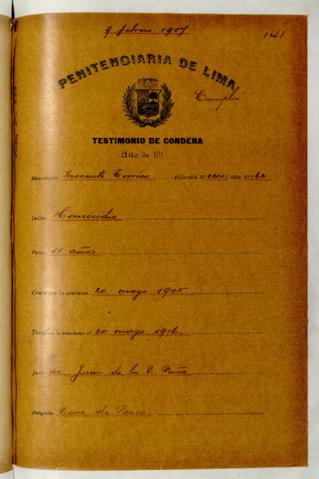 9 febrero 1907 141
PENITENCIARIA DE LIMA
Cumplió
TESTIMONIO DE CONDENA
Año de 191
Rematado Inocente Torres Filiación Nº Celda Nº 62
Delito Homicidio
Pena 11 años
Comenzó la condena 20 mayo 1905
Termina la condena el 20 mayo 1916
Juez Dr. Juan de la C. Peña
Juzgado Cerro de Pasco